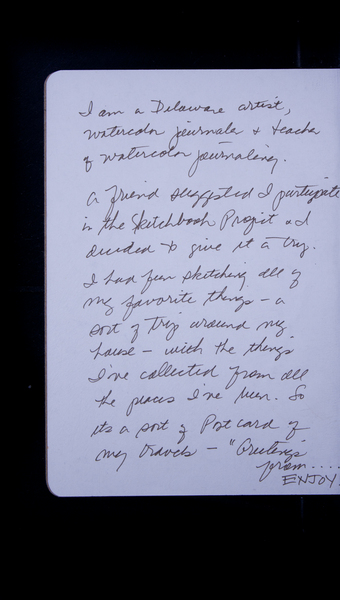 I am a Delaware artist,
watercolor journaler + teacher
of watercolor journaling.
A friend suggested I participate
in the Sketchbook Project and
decided to give it a try.
I had fun sketching all of
my favorite things - a
sort of trip around my
house - with the things
I've collected from all
the places I've been. So
its a sort of Postcard of
my travels - "Greetings
from....
ENJOY!